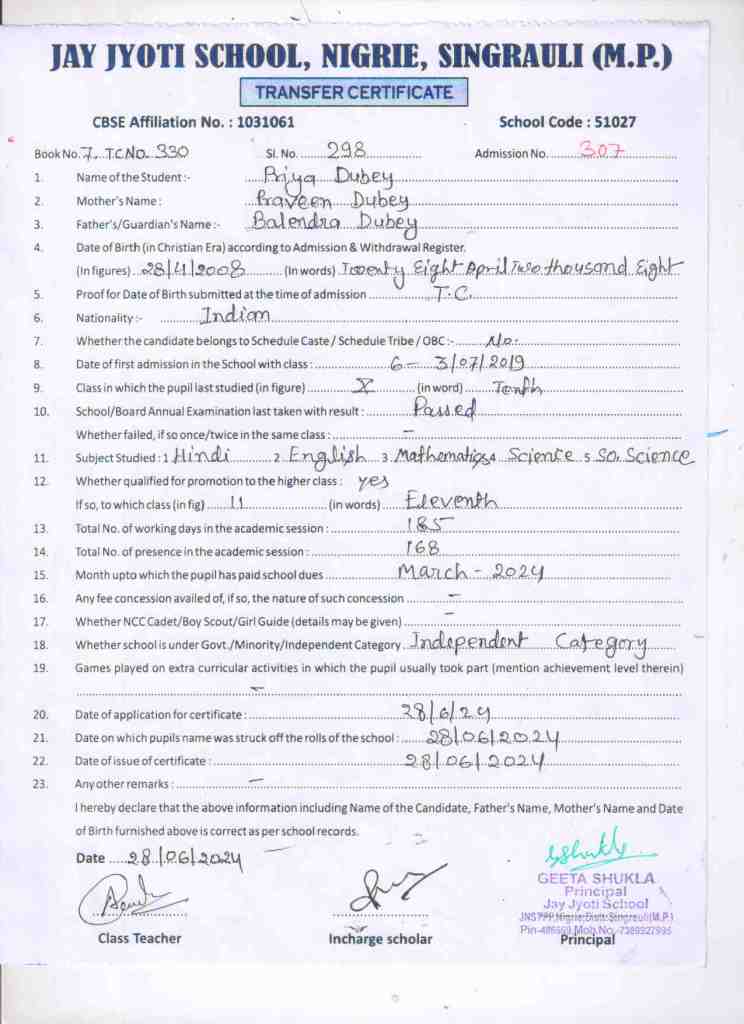 JAY JYOTI SCHOOL, NIGRIE, SINGRAULI (M.P.)
TRANSFER CERTIFICATE
CBSE Affiliation No. : 1031061 School Code : 51027
Book No. 7. T.C No. 330 Sl. No. 298 Admission No. 307
1. Name of the Student :- Priya Dubey
2. Mother's Name : Praveen Dubey
3. Father's/Guardian's Name :- Balendra Dubey
4. Date of Birth (in Christian Era) according to Admission & Withdrawal Register.
(In figures) 28/4/2008 (In words) Twenty Eight April Two thousand Eight
5. Proof for Date of Birth submitted at the time of admission T.C.
6. Nationality :- Indian
7. Whether the candidate belongs to Schedule Caste / Schedule Tribe / OBC :- No.
8. Date of first admission in the School with class : 6 - 3/07/2019
9. Class in which the pupil last studied (in figure) X (in word) Tenth
10. School/Board Annual Examination last taken with result : Passed
Whether failed, if so once/twice in the same class : -
11. Subject Studied : 1 Hindi 2 English 3 Mathematics 4 Science 5 So. Science
12. Whether qualified for promotion to the higher class : yes
If so, to which class (in fig) 11 (in words) Eleventh
13. Total No. of working days in the academic session : 185
14. Total No. of presence in the academic session : 168
15. Month upto which the pupil has paid school dues March - 2024
16. Any fee concession availed of, if so, the nature of such concession -
17. Whether NCC Cadet/Boy Scout/Girl Guide (details may be given) -
18. Whether school is under Govt./Minority/Independent Category. Independent Category
19. Games played on extra curricular activities in which the pupil usually took part (mention achievement level therein)
-
20. Date of application for certificate : 28/6/24
21. Date on which pupils name was struck off the rolls of the school : 28/06/2024
22. Date of issue of certificate : 28/06/2024
23. Any other remarks : -
I hereby declare that the above information including Name of the Candidate, Father's Name, Mother's Name and Date
of Birth furnished above is correct as per school records.
Date 28/06/2024
GShukla
GEETA SHUKLA
Principal
Jay Jyoti School
Nigrie, Distt. Singrauli (M.P.)
Mob. No.-7389927995
Class Teacher Incharge scholar Principal